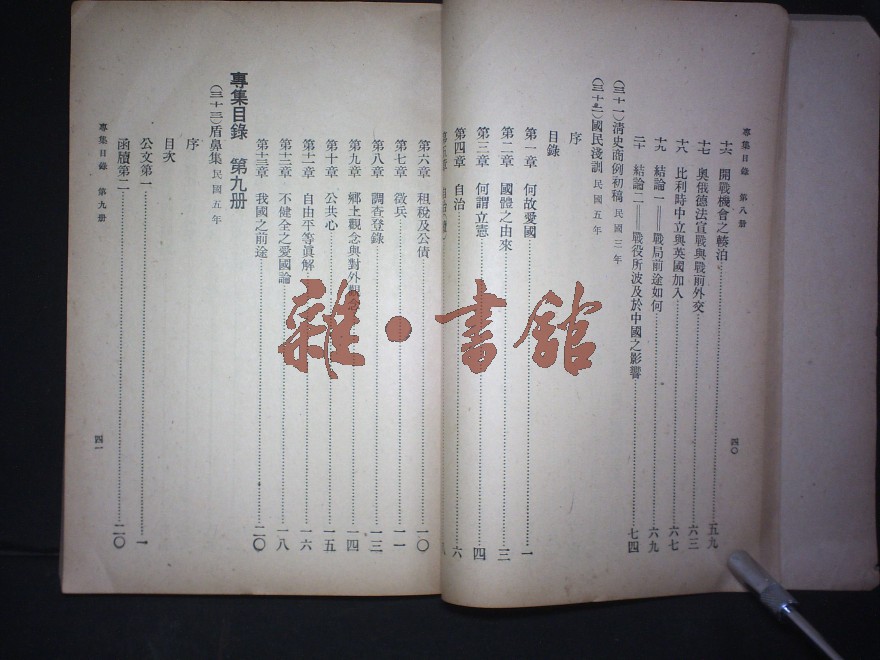 專集目錄 第八册
十六 開戰機會之輳泊 五九
十七 奥俄德法宣戰與戰前外交 六三
十八 比利時中立與英國加入 六七
十九 結論一——戰局前途如何 六九
二十 結論二——戰役所波及於中國之影響 七四
（三十一）清史商例初稿 民國三年
（三十二）國民淺訓 民國五年
序
目錄
第一章 何故愛國 一
第二章 國體之由來 三
第三章 何謂立憲 四
第四章 自治 六
四〇
第六章 租稅及公債 一〇
第七章 徵兵 一一
第八章 調查登錄 一三
第九章 鄉土觀念與對外觀念 一四
第十章 公共心 一五
第十一章 自由平等眞解 一六
第十二章 不健全之愛國論 一八
第十三章 我國之前途 二〇
專集目錄 第九册
（三十三）盾鼻集 民國五年
序
目次
公文第一 一
函牘第二 二〇
專集目錄 第九册
四一
雜·書館